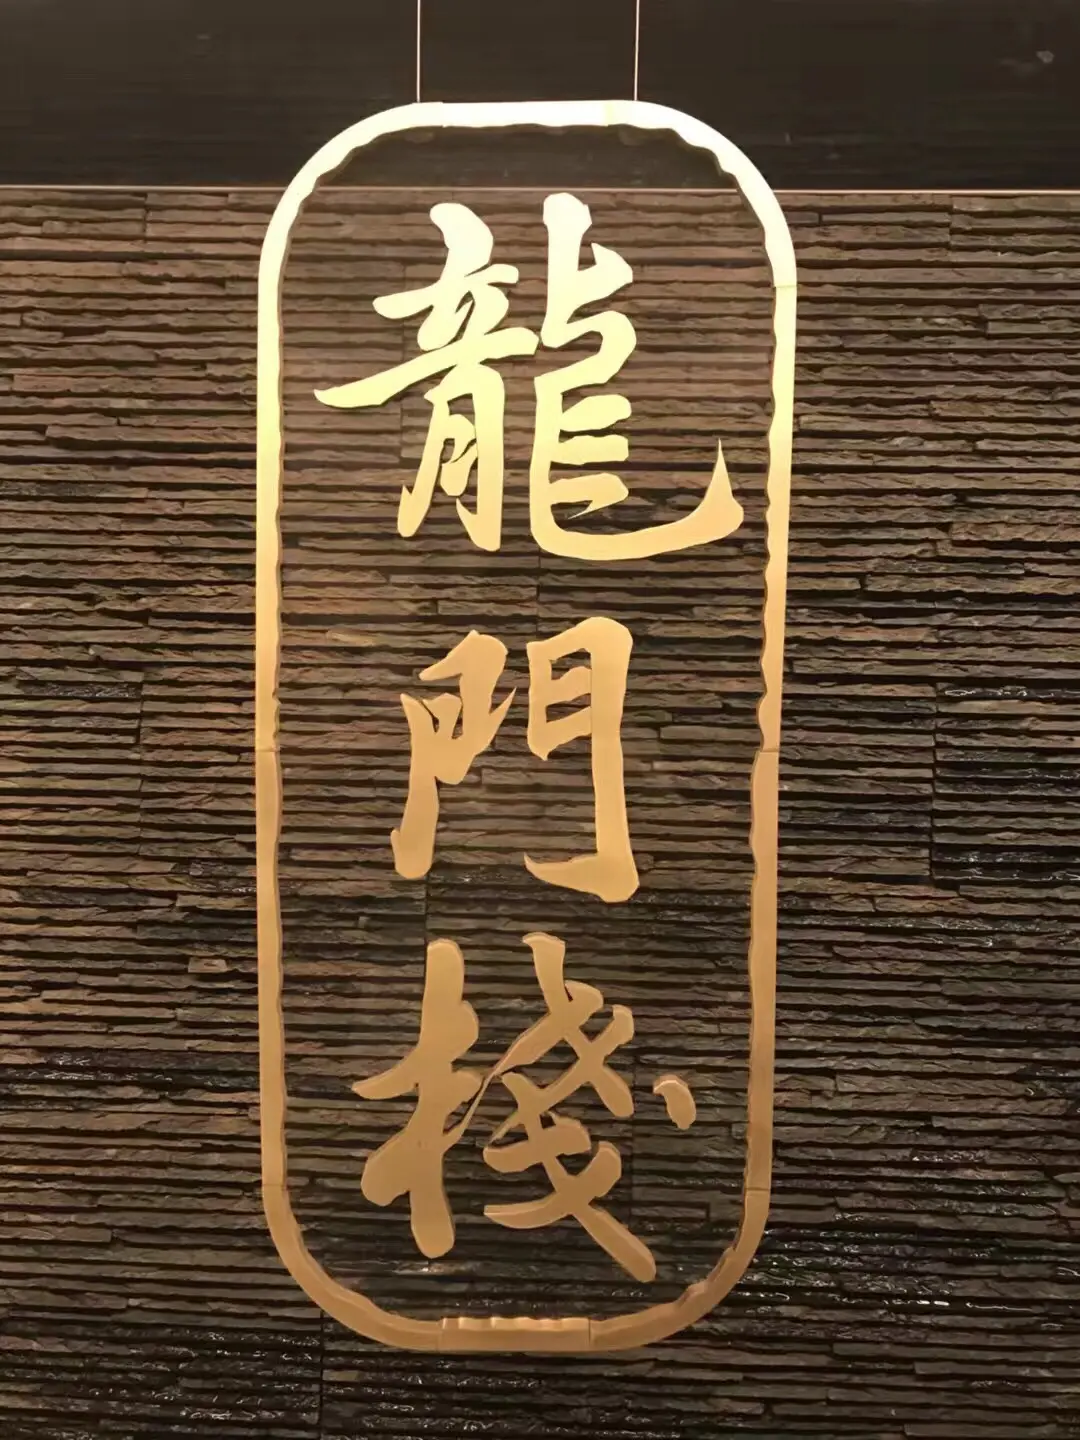 龍門棧